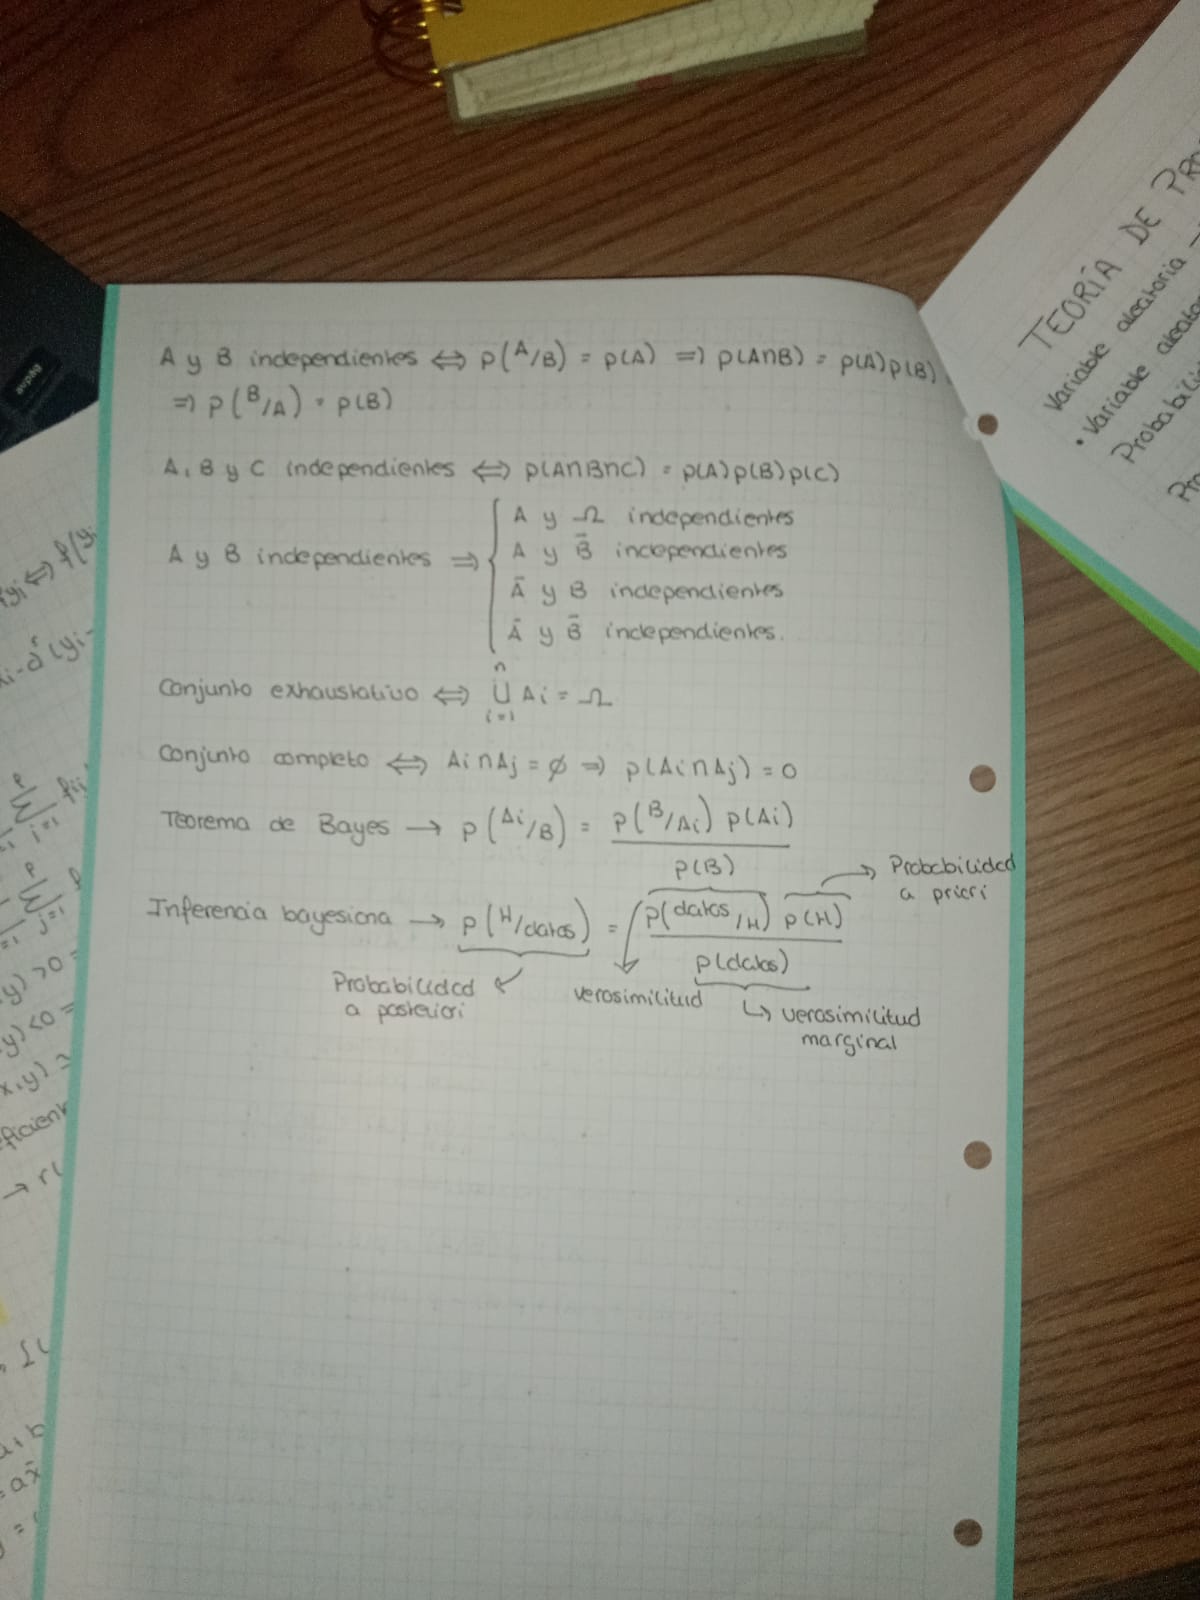 A y B independientes ⇔ P(A/B) = P(A) ⇒ P(A∩B) = P(A)P(B)
⇒ P(B/A) = P(B)
A, B y C independientes ⇔ P(A∩B∩C) = P(A)P(B)P(C)
A y B independientes ⇒ {
A y Ω independientes
A y B̄ independientes
Ā y B independientes
Ā y B̄ independientes.
Conjunto exhaustativo ⇔ ⋃ᵢ₌₁ⁿ Ai = Ω
Conjunto completo ⇔ Ai∩Aj = ∅ ⇒ P(Ai∩Aj) = 0
Teorema de Bayes → P(Ai/B) = P(B/Ai) P(Ai)
P(B)
Probabilidad
a priori
Inferencia bayesiana → P(H/datos) = P(datos/H) P(H)
P(datos)
Probabilidad
a posteriori
verosimilitud
↳ verosimilitud
marginal
TEORÍA DE
Variable aleatoria
• Variable